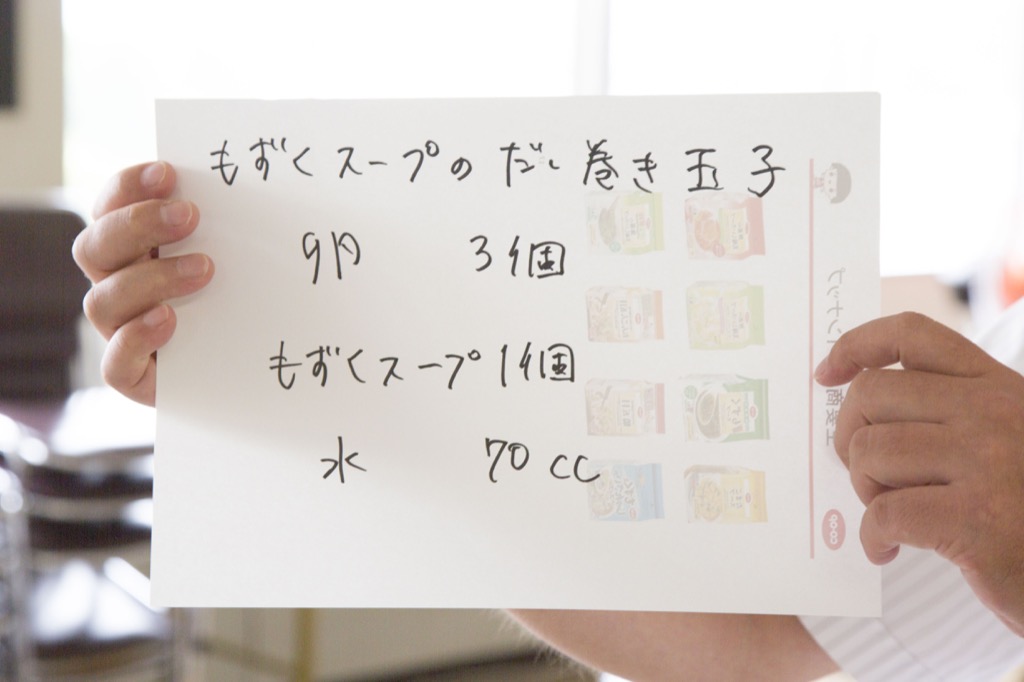 もずくスープのだし巻き玉子
卵 3個
もずくスープ1個
水 70cc